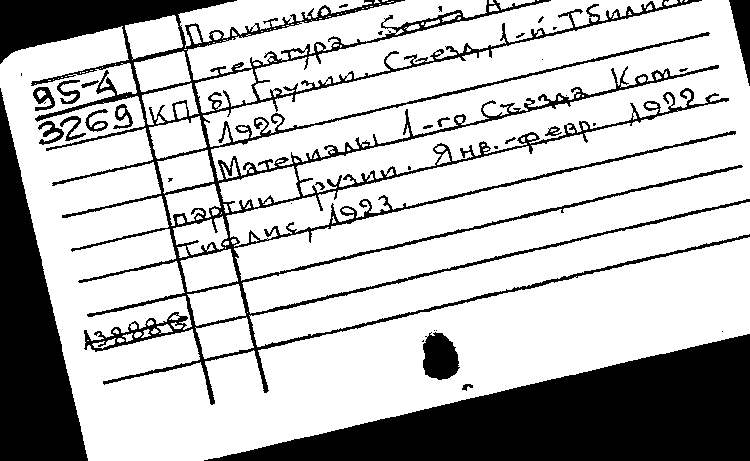 Политико-
тература. Серiя А.
95-4
3269 КП(б). Грузии. Съезд, 1-й. Тбилиси
1922.
Материалы 1-го Съезда Ком-
партии Грузии. Янв.-февр. 1922 г.
Тифлис, 1923.
А38886